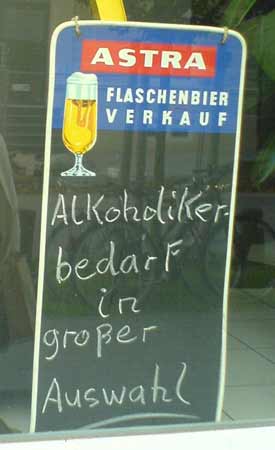 ASTRA
FLASCHENBIER
VERKAUF
Alkoholiker-
bedarf
in
großer
Auswahl